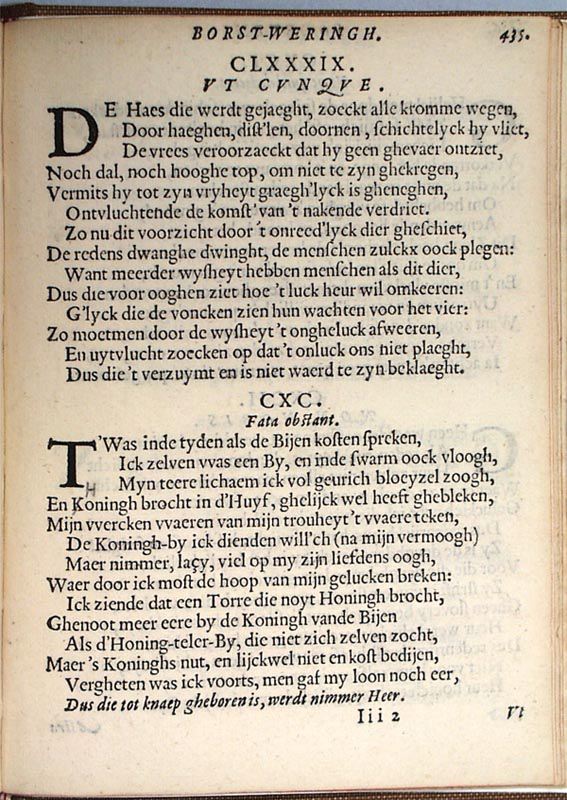 BORST-WERINGH. 435.
CLXXXIX.
VT CVNQVE.
DE Haes die werdt gejaeght, zoeckt alle kromme wegen,
Door haeghen, dist'len, doornen, schichtelyck hy vliet,
De vrees veroorzaeckt dat hy geen ghevaer ontziet,
Noch dal, noch hooghe top, om niet te zyn ghekregen,
Vermits hy tot zyn vryheyt graegh'lyck is gheneghen,
Ontvluchtende de komst' van 't nakende verdriet.
Zo nu dit voorzicht door 't onreed'lyck dier gheschiet,
De redens dwanghe dwinght, de menschen zulckx oock plegen:
Want meerder wysheyt hebben menschen als dit dier,
Dus die voor ooghen ziet hoe 't luck heur wil omkeeren:
G'lyck die de voncken zien hun wachten voor het vier:
Zo moetmen door de wysheyt 't ongheluck afweeren,
En uytvlucht zoecken op dat 't onluck ons niet plaeght,
Dus die 't verzuymt en is niet waerd te zyn beklaeght.
CXC.
Fata obstant.
T'Was inde tyden als de Bijen kosten spreken,
Ick zelven vvas een By, en inde swarm oock vloogh,
Myn teere lichaem ick vol geurich bloeyzel zoogh,
En Koningh brocht in d'Huyf, ghelijck wel heeft ghebleken,
Mijn vvercken vvaeren van mijn trouheyt 't vvaere teken,
De Koningh-by ick dienden will'ch (na mijn vermoogh)
Maer nimmer, laçy, viel op my zijn liefdens oogh,
Waer door ick most de hoop van mijn gelucken breken:
Ick ziende dat een Torre die noyt Honingh brocht,
Ghenoot meer eere by de Koningh vande Bijen
Als d'Honing-teler-By, die niet zich zelven zocht,
Maer 's Koninghs nut, en lijckwel niet en kost bedijen,
Vergheten was ick voorts, men gaf my loon noch eer,
Dus die tot knaep gheboren is, werdt nimmer Heer.
Iii 2 Vt